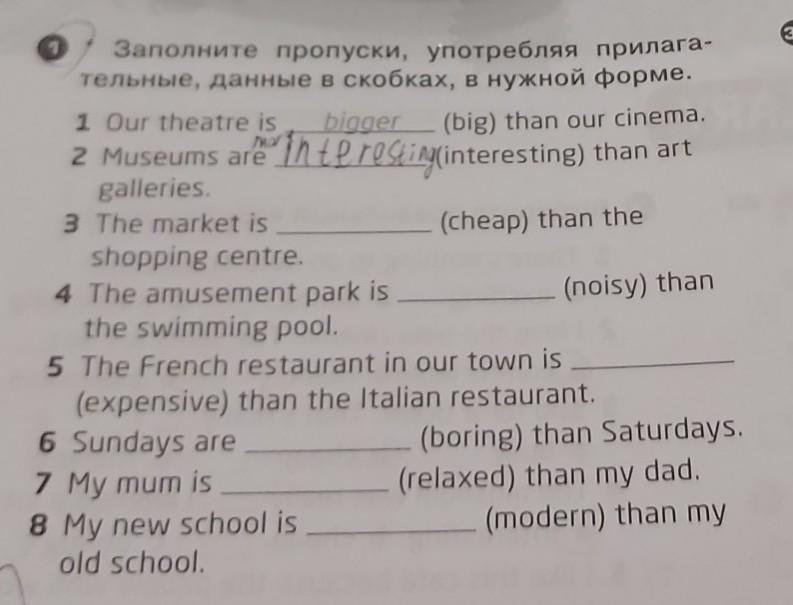 1 Заполните пропуски, употребляя прилага-
тельные, данные в скобках, в нужной форме.
1 Our theatre is bigger (big) than our cinema.
2 Museums are interesting (interesting) than art
galleries.
3 The market is ____________ (cheap) than the
shopping centre.
4 The amusement park is ____________ (noisy) than
the swimming pool.
5 The French restaurant in our town is ____________
(expensive) than the Italian restaurant.
6 Sundays are ____________ (boring) than Saturdays.
7 My mum is ____________ (relaxed) than my dad.
8 My new school is ____________ (modern) than my
old school.